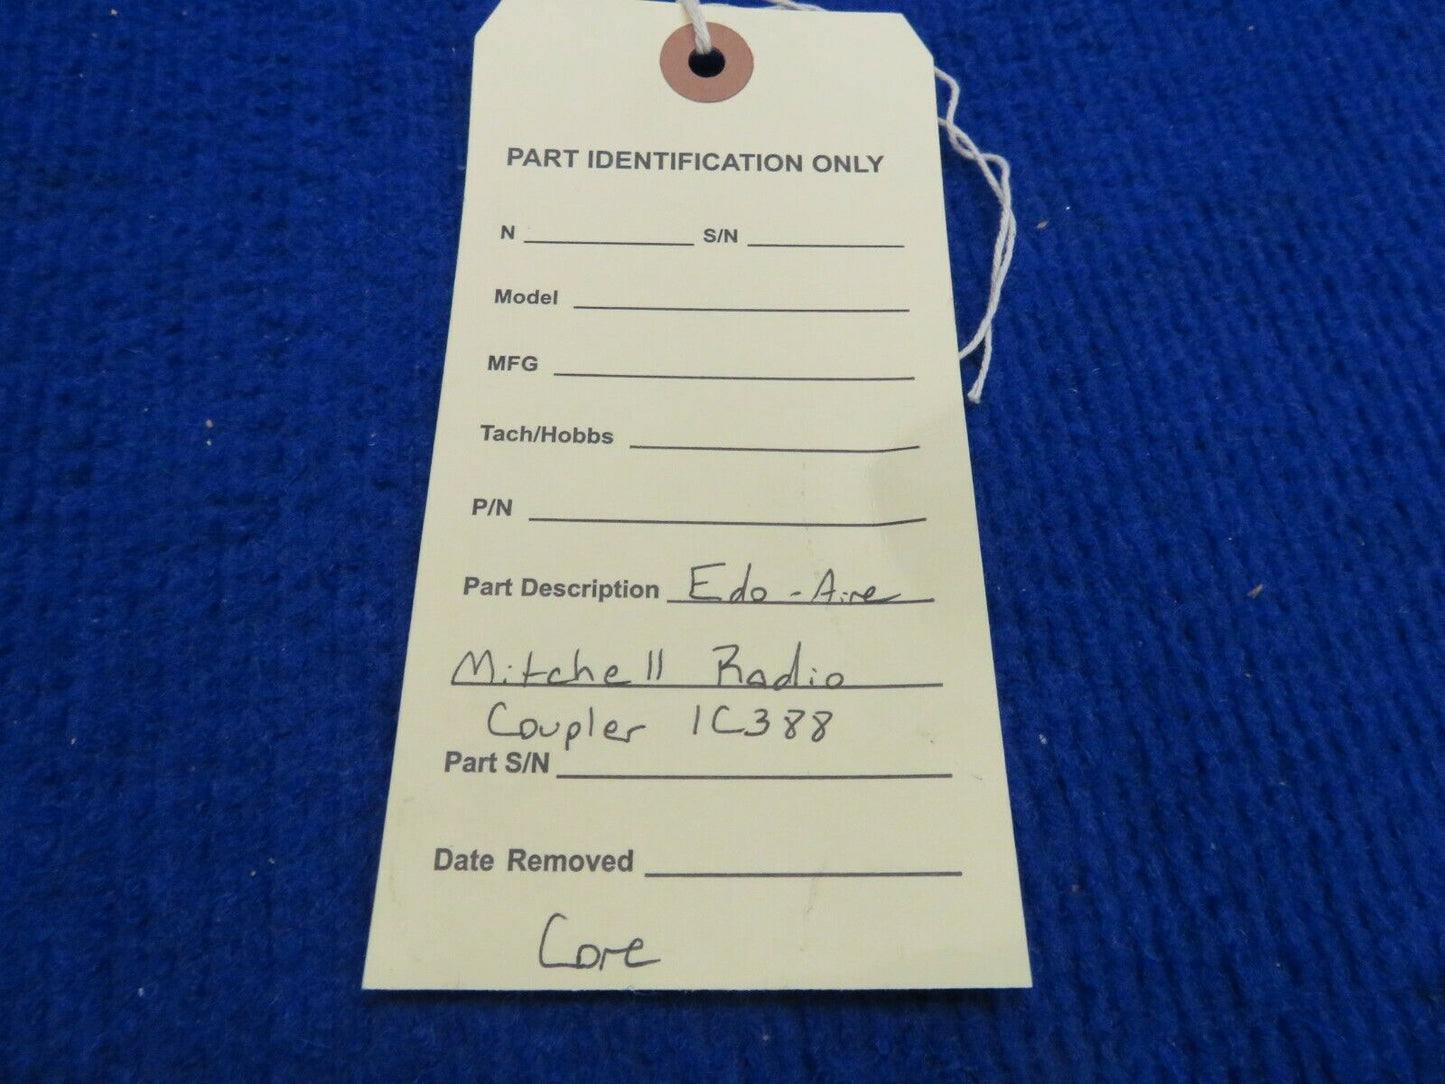 PART IDENTIFICATION ONLY
N S/N
Model
MFG
Tach/Hobbs
P/N
Part Description Edo-Aire
Mitchell Radio
Coupler 1C388
Part S/N
Date Removed
Core